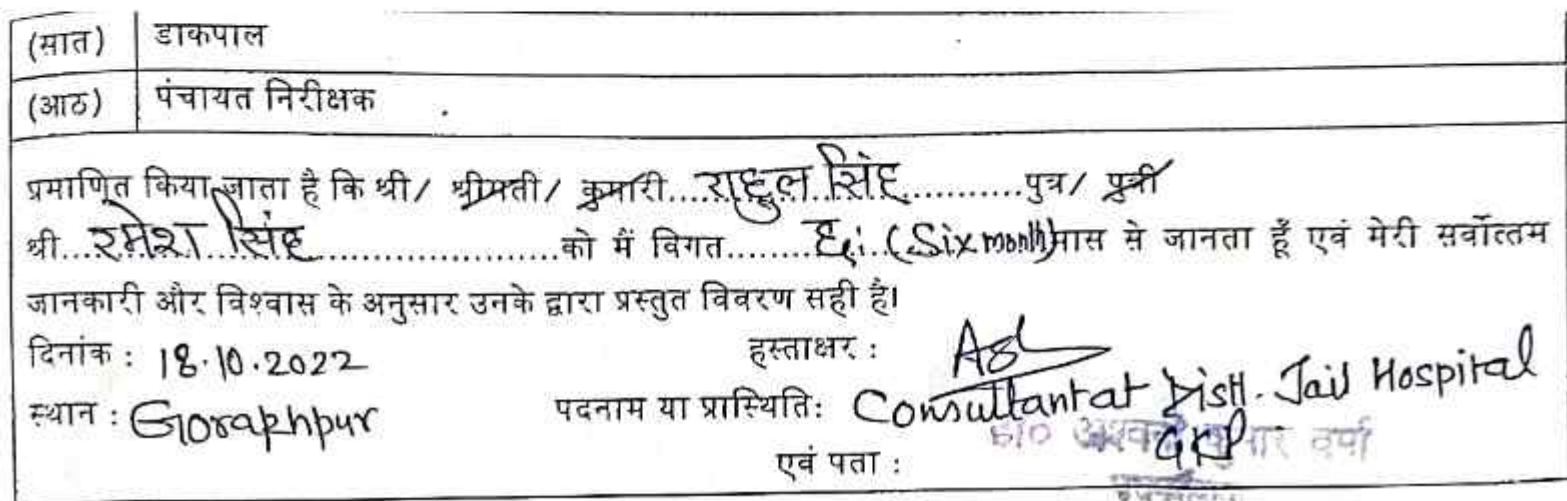 (सात) डाकपाल
(आठ) पंचायत निरीक्षक
प्रमाणित किया जाता है कि श्री/ श्रीमती/ कुमारी...राहुल सिंह............पुत्र/ पुत्री
श्री...रमेश सिंह.........................को मैं विगत.........(Six month)मास से जानता हूँ एवं मेरी सर्वोत्तम
जानकारी और विश्वास के अनुसार उनके द्वारा प्रस्तुत विवरण सही है।
दिनांक : 18.10.2022 हस्ताक्षर :
स्थान : Goraphpur पदनाम या प्रास्थिति: Consultant at Distt. Jail Hospital
GKP
कुमार वर्मा
एवं पता :